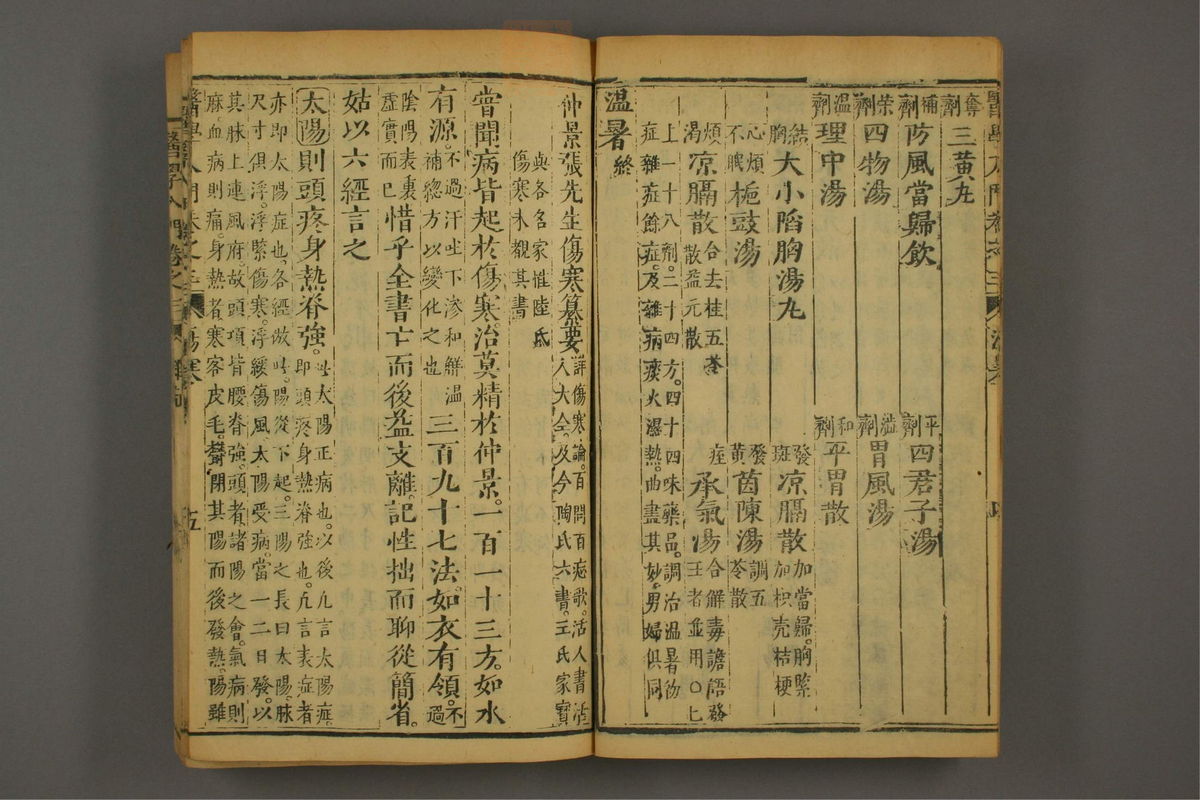 奪劑 三黃丸
補劑 防風當歸飲 平劑 四君子湯
榮劑 四物湯 濫劑 胃風湯
溫劑 理中湯 和劑 平胃散
結胸 大小陷胸湯丸 發斑 凉膈散 加當歸胸緊加枳壳桔梗
心煩不眠 梔豉湯 發黃 茵陳湯 調五苓散
煩渴 凉膈散 合去桂五苓散益元散 痓 承氣湯 合解毒譫語發狂者並用○七
上一十八劑二十四方四十四味藥品調治溫暑初
症雜症餘症及雜病痰火濕熱曲盡其妙男婦俱同
溫暑終
仲景張先生傷寒纂要 詳傷寒論百問百症歌活人書活人大全及今陶氏六書王氏家寶
與各名家惟陸氏傷寒未覩其書
嘗聞病皆起於傷寒治莫精於仲景一百一十三方如水
有源 不過汗吐下滲和解溫補緫方以變化之也 三百九十七法如衣有領 不過
陰陽表裏虛實而已 惜乎全書亡而後益支離記性拙而聊從簡省
姑以六經言之
太陽則頭疼身熱脊強 此太陽正病也以後凡言太陽症即頭疼身熱脊強也凡言表症者
亦即太陽症也各經倣此陽從下起三陽之長曰太陽脉
尺寸俱浮浮緊傷寒浮緩傷風太陽受病當一二日發以
其脉上連風府故頭項皆腰脊強頭者諸陽之會氣病則
麻血病則痛身熱者寒客皮毛鬱閉其陽而後發熱陽雖
醫學入門卷之三 傷寒 五